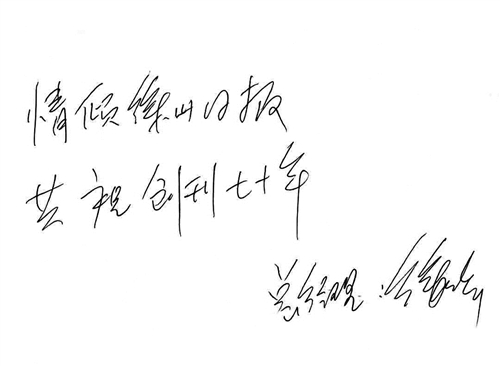 情倾山日报
共祝创刊七十年
总经理